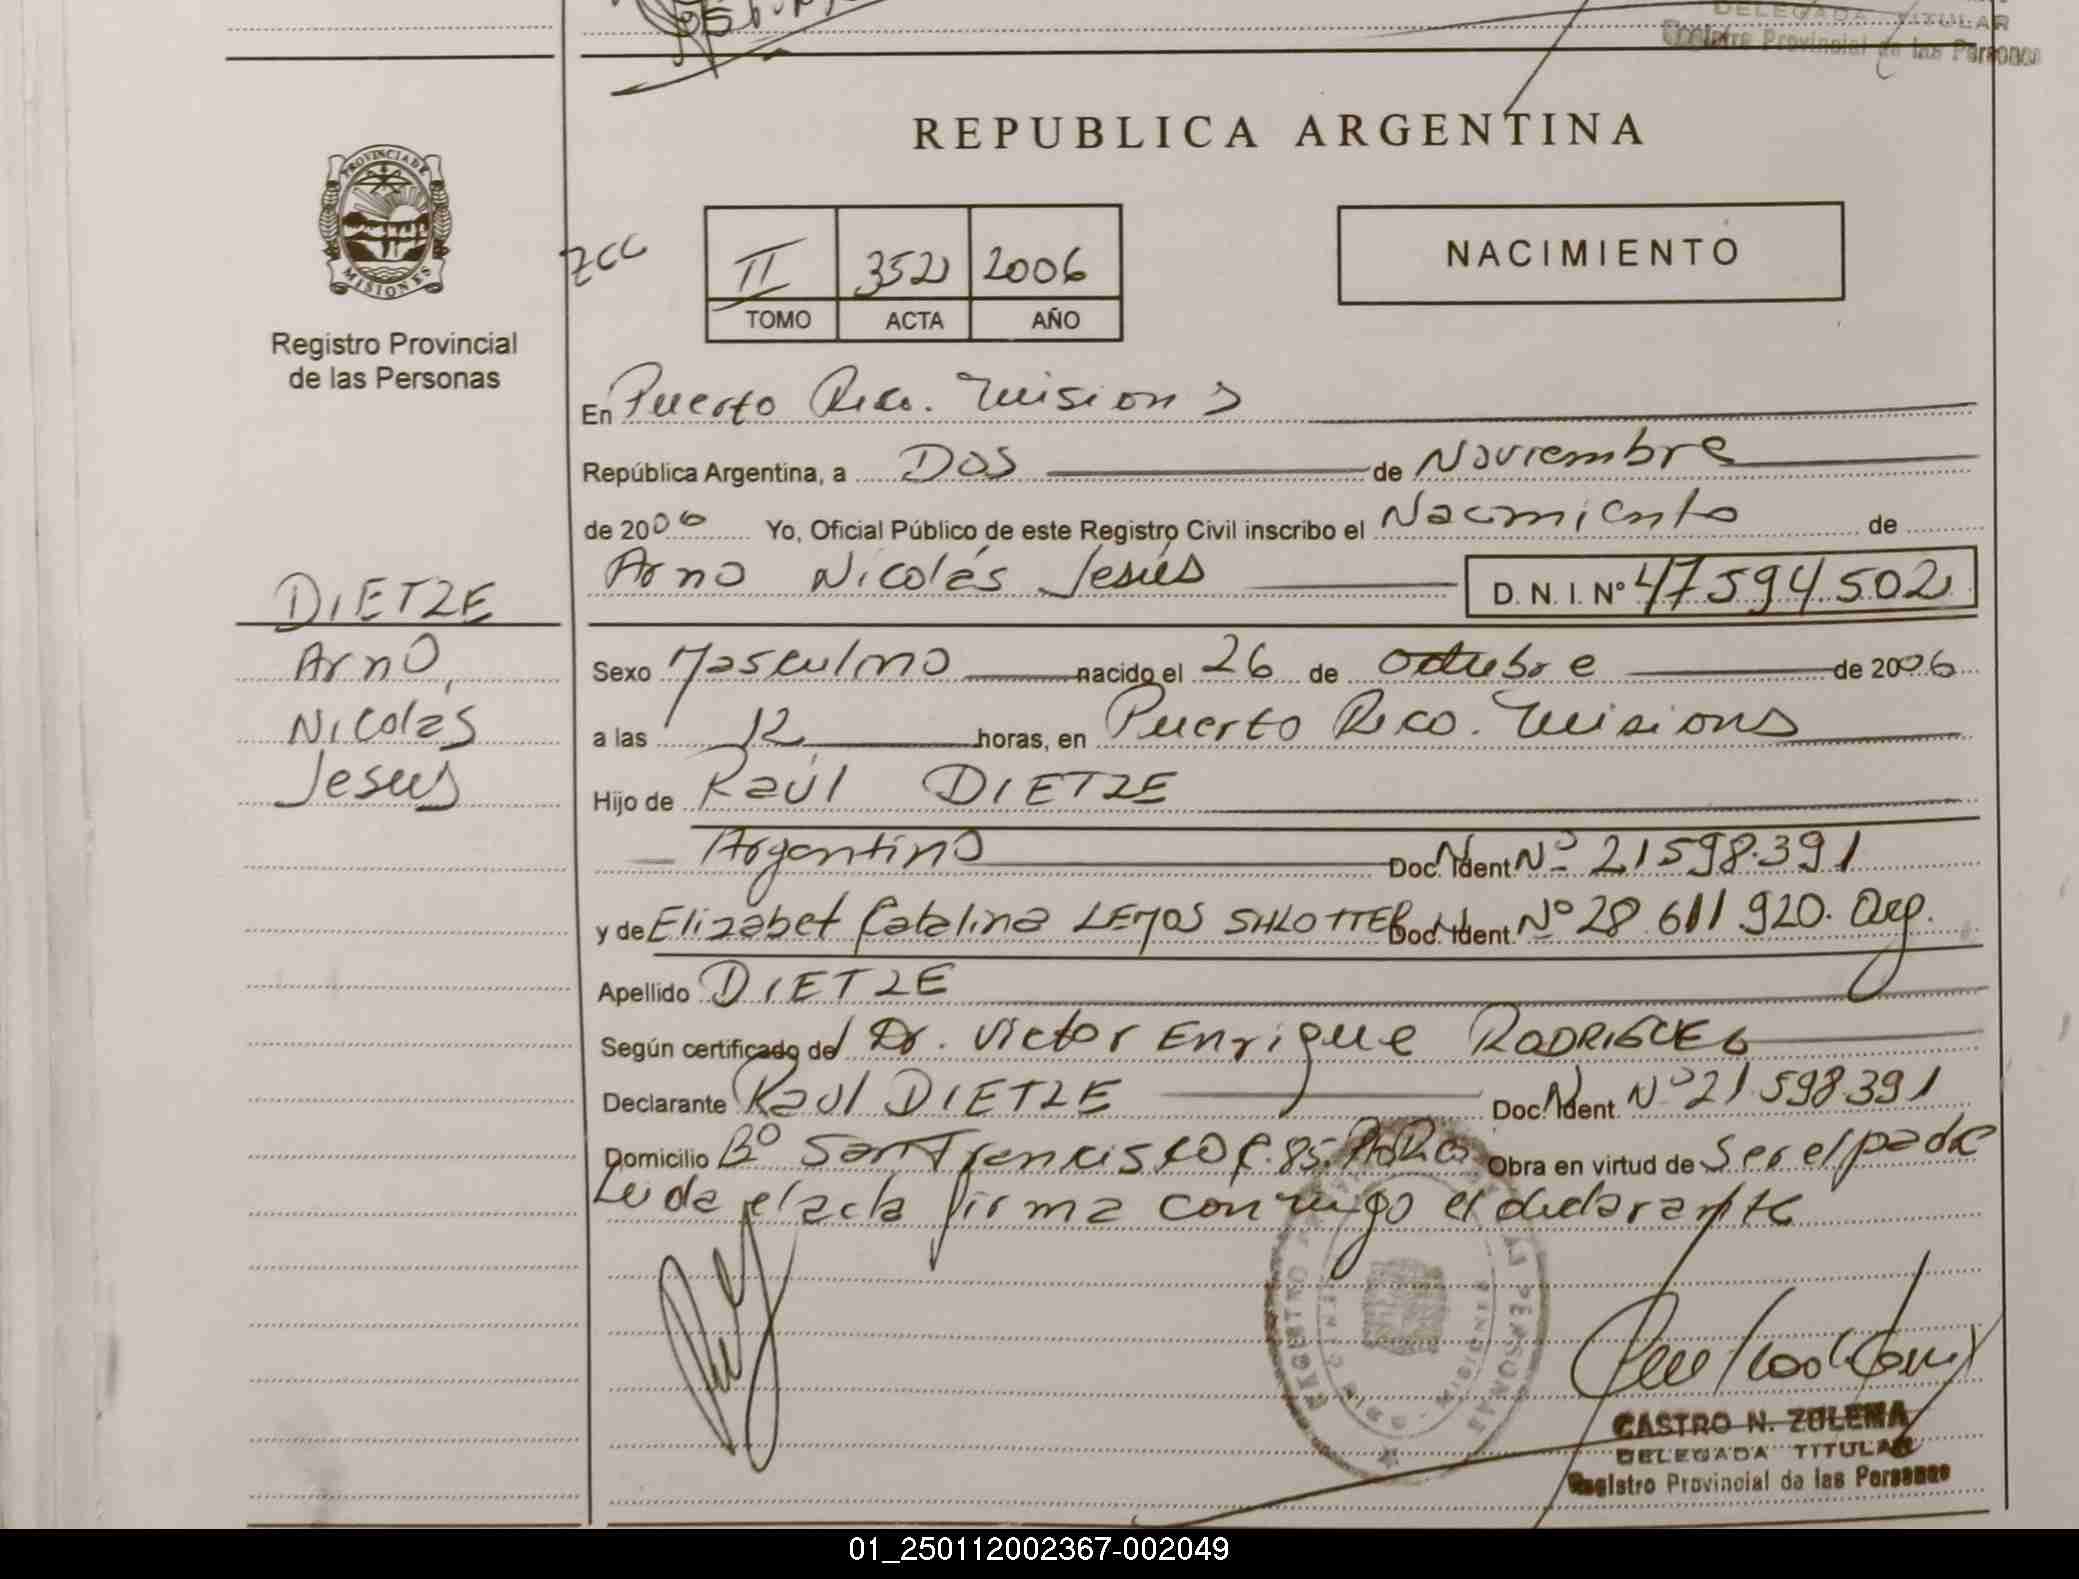 DELEGADA TITULAR
Registro Provincial de las Personas
PROVINCIA DE
MISIONES
Registro Provincial
de las Personas
REPUBLICA ARGENTINA
zcc
II 352 2006
TOMO ACTA AÑO
NACIMIENTO
En Puerto Rico. Misiones
República Argentina, a Dos de Noviembre
de 2006 Yo, Oficial Público de este Registro Civil inscribo el Nacimiento de
Arno Nicolás Jesús D. N. I. Nº 47.594.502
DIETZE
Arno,
Nicolás
Jesus
Sexo Masculino nacido el 26 de octubre de 2006
a las 12 horas, en Puerto Rico. Misiones
Hijo de Raúl DIETZE
Argentino Doc. Ident. Nº 21598.391
y de Elizabet Catalina LEMOS SHLOTTER Doc. Ident. Nº 28.611.920. Arg.
Apellido DIETZE
Según certificado del Dr. Victor Enrique RODRIGUEZ
Declarante Raúl DIETZE Doc. Ident. Nº 21.598391
Domicilio Bº San Francisco C. 85. Obra en virtud de Ser el padre
Leida el acta firma conmigo el declarante
REGISTRO PERSONAS
MISIONES
CASTRO N. ZULEMA
DELEGADA TITULAR
Registro Provincial de las Personas
01_250112002367-002049